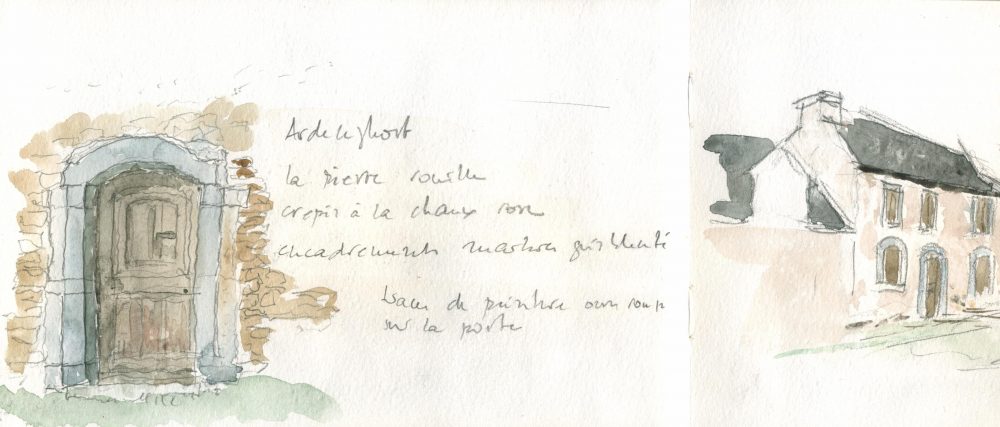 Ardenghost
la pierre rouille
crepis à la chaux rose
encadrements marbres gris bleuté
traces de peinture
sur la porte